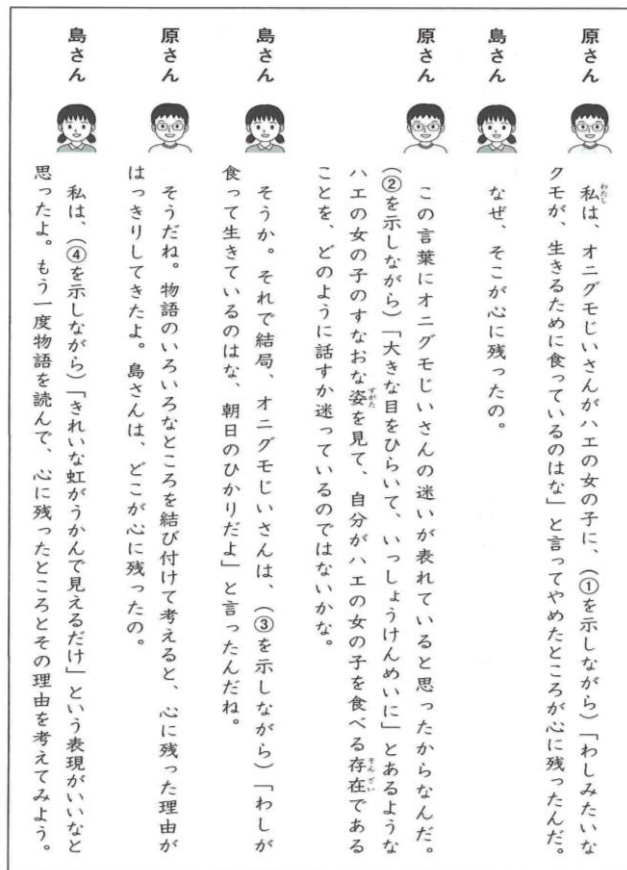 原さん
私は、オニグモじいさんがハエの女の子に、(①を示しながら)「わしみたいな
クモが、生きるために食っているのはな」と言ってやめたところが心に残ったんだ。
島さん
なぜ、そこが心に残ったの。
原さん
この言葉にオニグモじいさんの迷いが表れていると思ったからなんだ。
(②を示しながら)「大きな目をひらいて、いっしょうけんめいに」とあるような
ハエの女の子のすなおな姿を見て、自分がハエの女の子を食べる存在である
ことを、どのように話すか迷っているのではないかな。
島さん
そうか。それで結局、オニグモじいさんは、(③を示しながら)「わしが
食って生きているのはな、朝日のひかりだよ」と言ったんだね。
原さん
そうだね。物語のいろいろなところを結び付けて考えると、心に残った理由が
はっきりしてきたよ。島さんは、どこが心に残ったの。
島さん
私は、(④を示しながら)「きれいな虹がうかんで見えるだけ」という表現がいいなと
思ったよ。もう一度物語を読んで、心に残ったところとその理由を考えてみよう。
わたし
すがた
そんざい